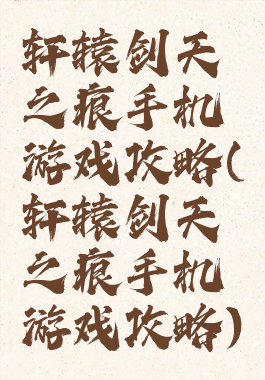 轩辕剑天
之痕手机
游戏攻略(
轩辕剑天
之痕手机
游戏攻略)